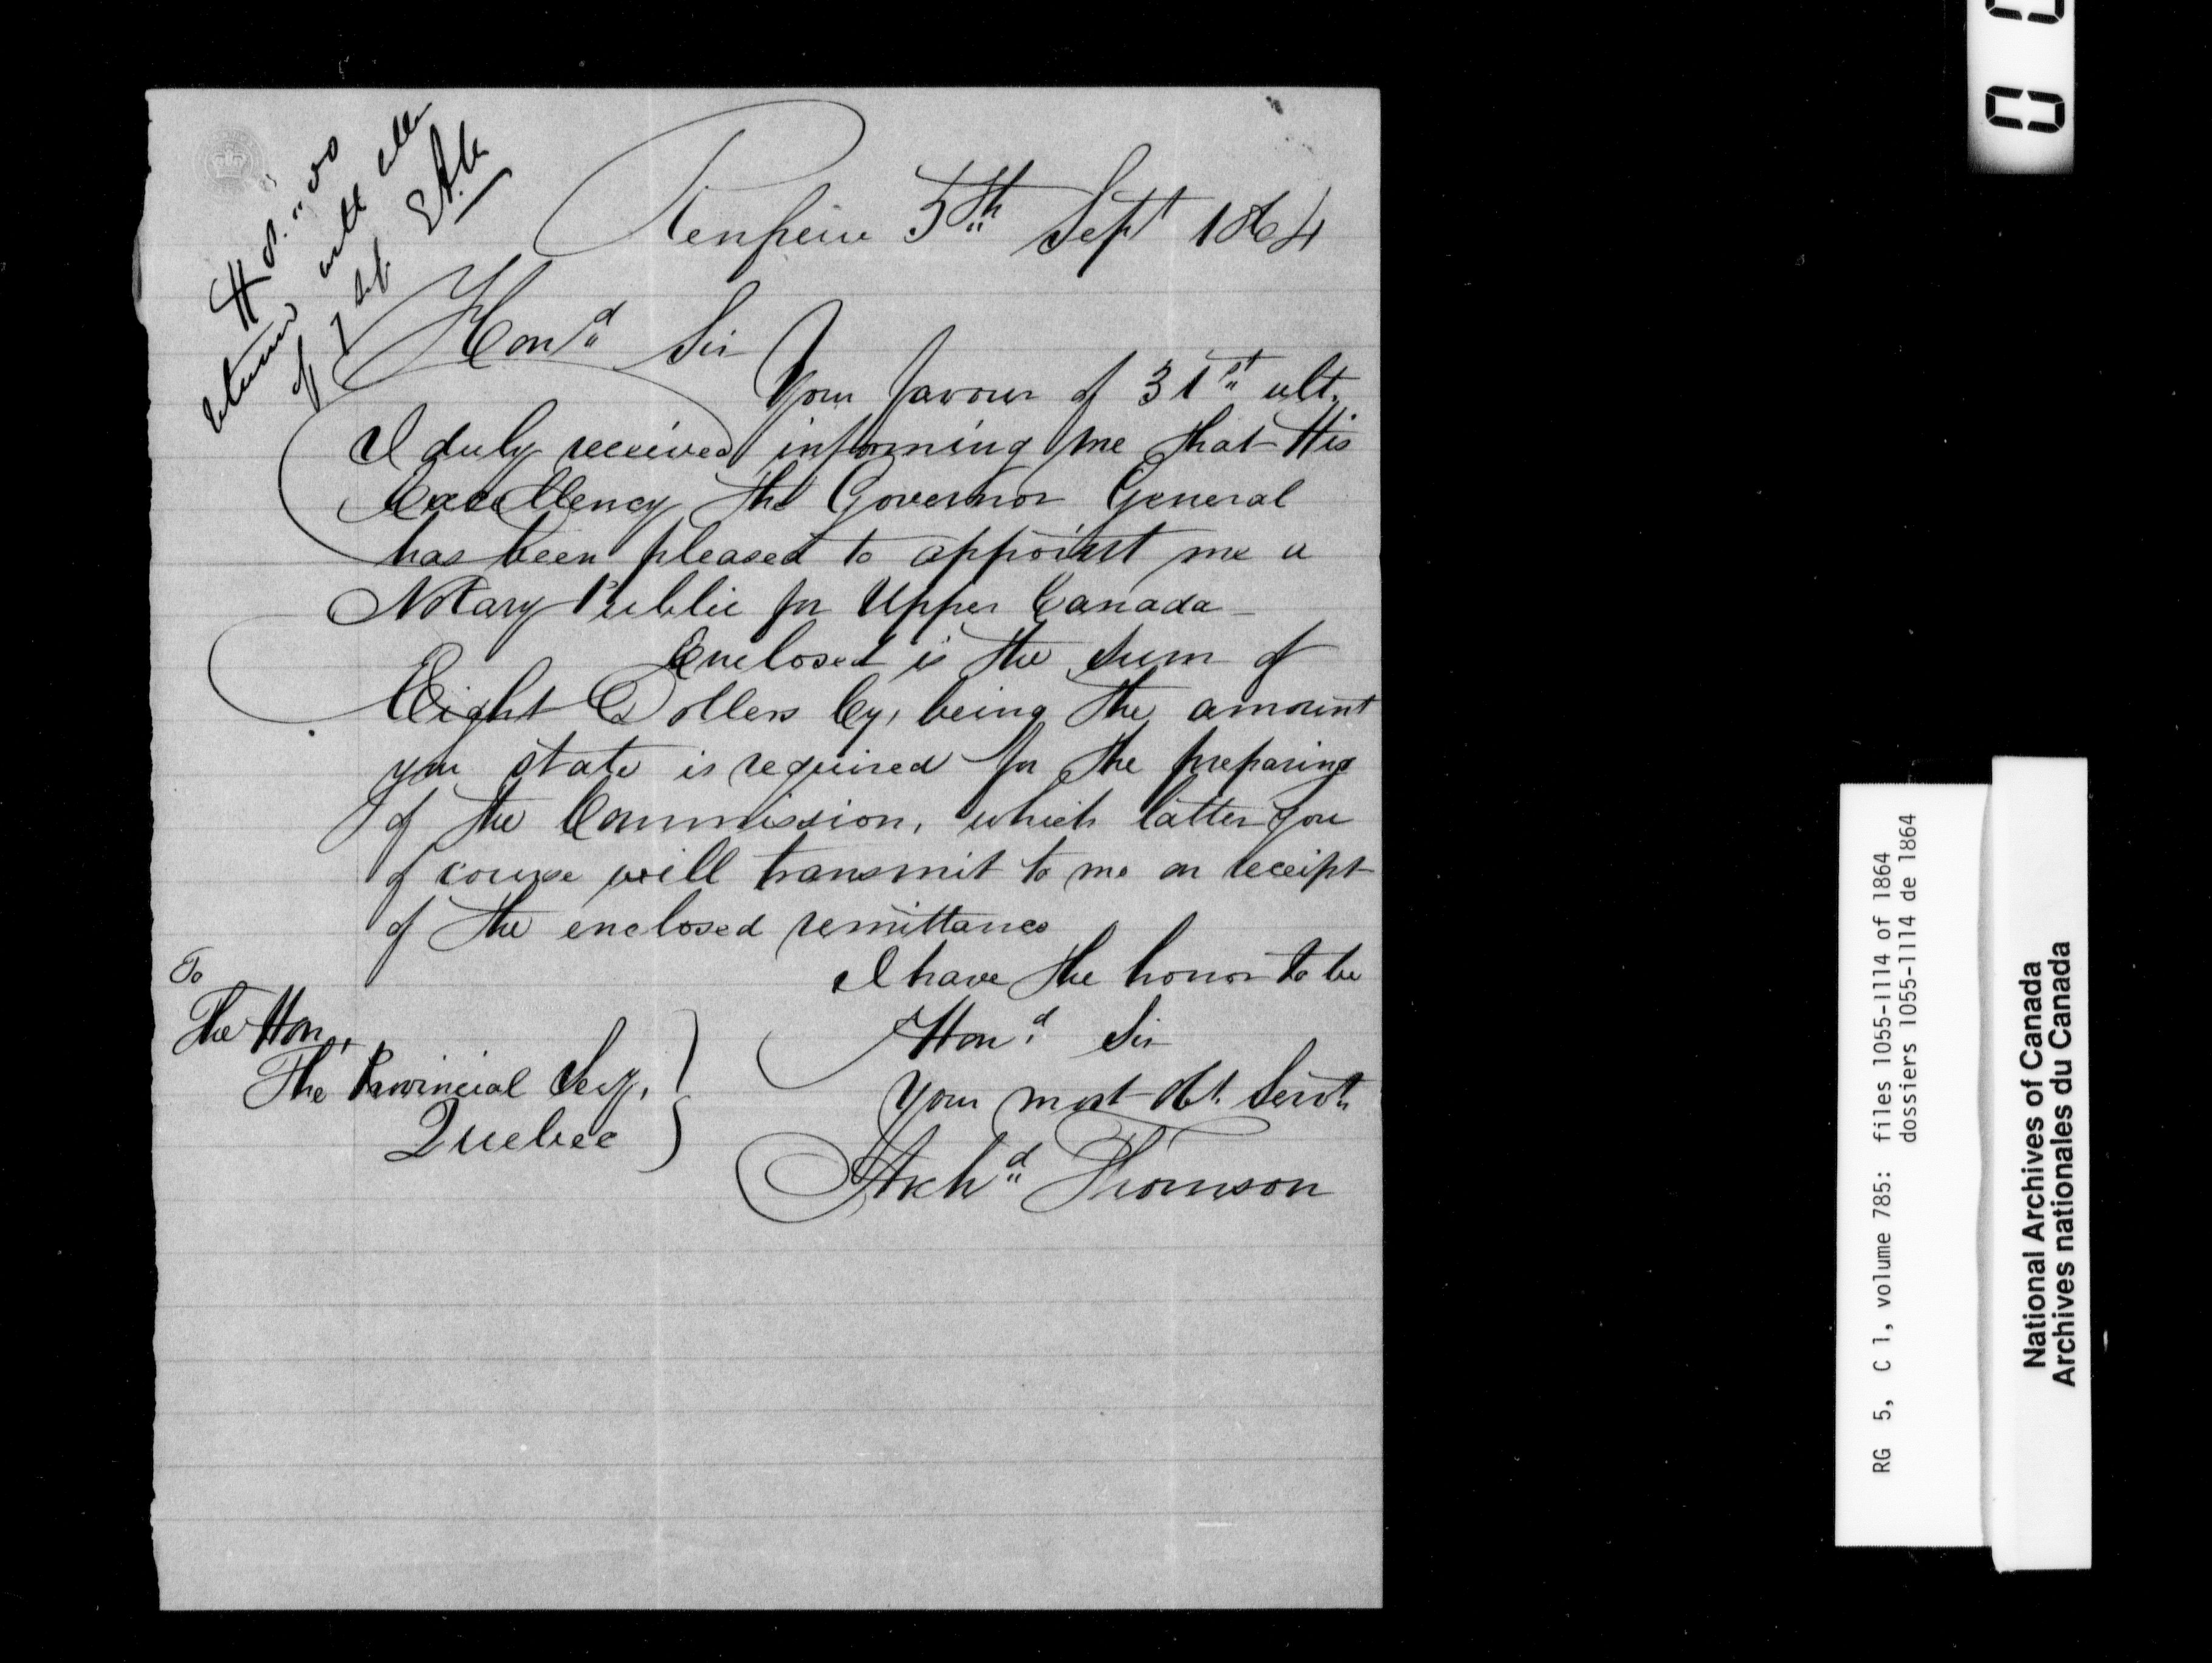 $8.''00
returned with
of 7 Sept
Renfrew 5th Sept 1864
Hond Sir
Your favour of 31st ult.
I duly received informing me that His
Excellency the Governor General
has been pleased to appoint me a
Notary Public for Upper Canada
Enclosed is the sum of
Eight Dollers Cy, being the amount
you state is required for the preparing
of the Commission, which latter you
of course will transmit to me on receipt
of the enclosed remittance
I have the honor to be
Hond Sir
Your most Obt. Servt.
Archd Thomson
To
The Hon,
The Provincial Secy,
Quebec
RG 5, C 1, volume 785: files 1055-1114 of 1864
dossiers 1055-1114 de 1864
National Archives of Canada
Archives nationales du Canada